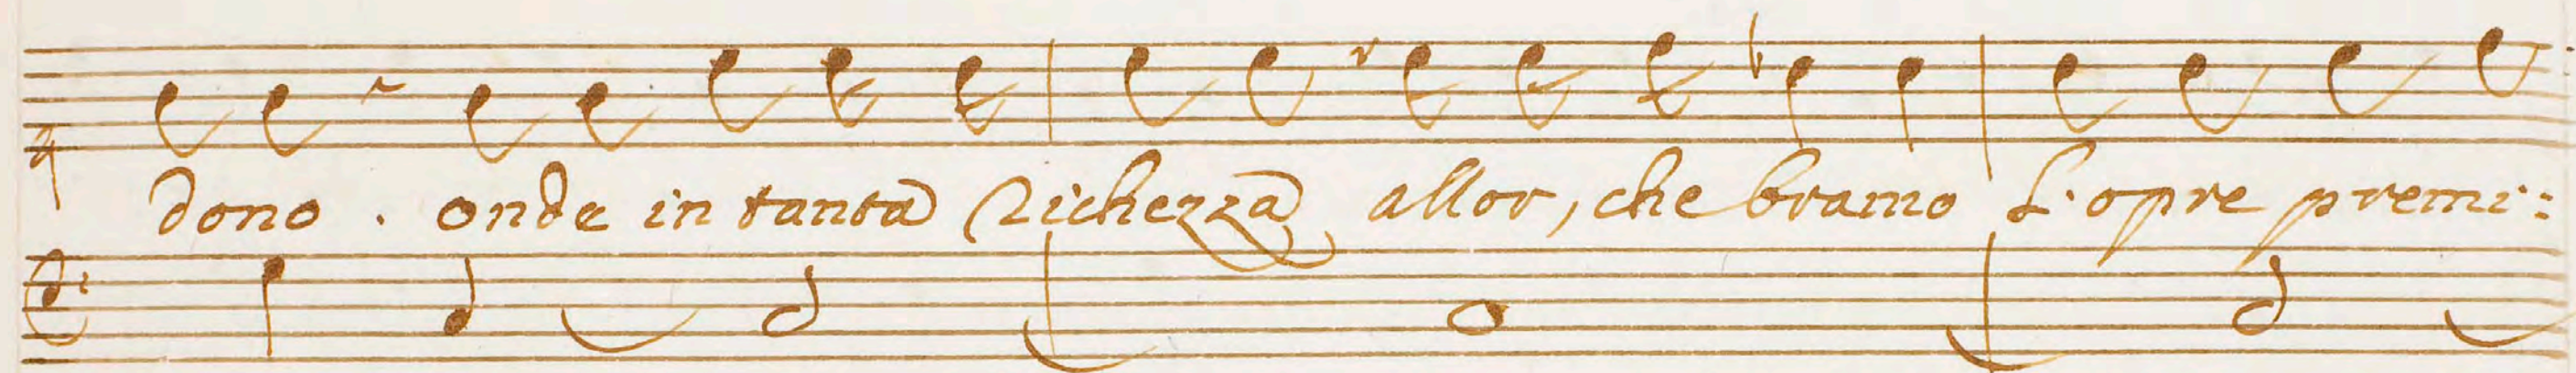 dono . onde in tanta Richezza allor, che bramo L'opre premi: